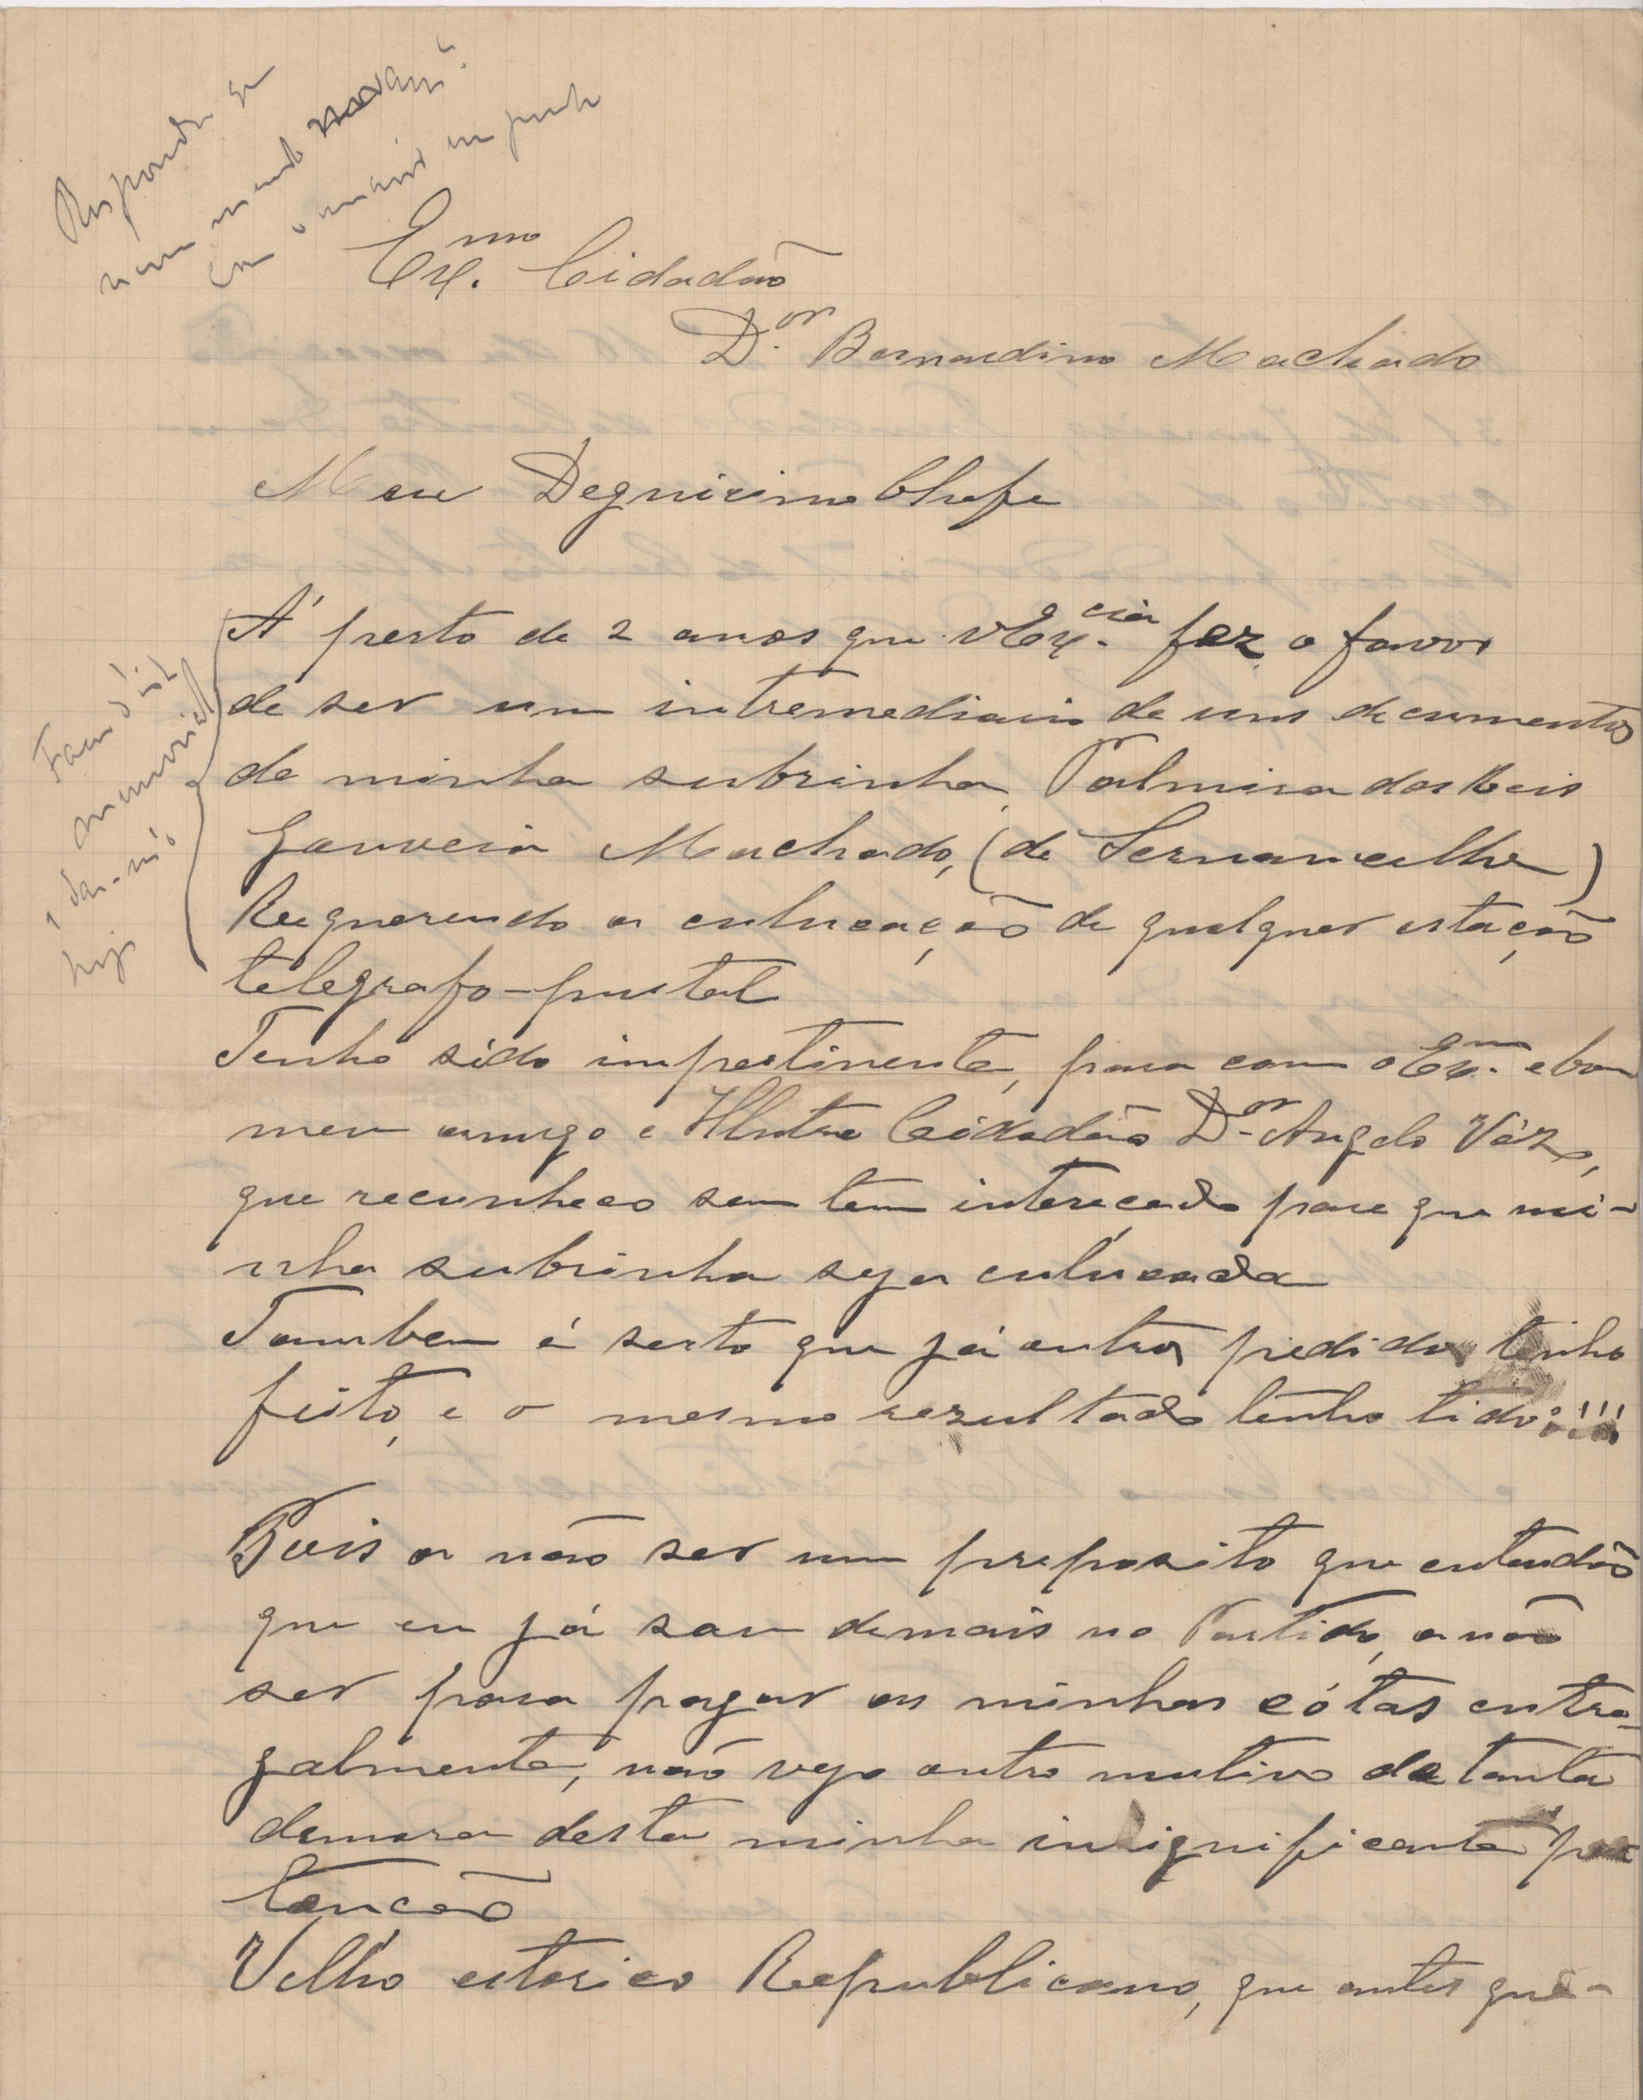 Responda que
não mando
com o maior
Ex.mo Cidadão
D.or Bernardino Machado
Meu Degnicimo Chefe
Á perto de 2 anos que vEx.cia fez o favor
de ser um intremediario de uns documentos
de minha subrinha Palmira dos Reis
Gouveia Machado, (de Sernancelhe)
Requerendo a culucação de qualquer estação
telegrafo-pustal
Tenho sido impertinente, para com o Ex.mo e bom
meu amigo e Illustre Cidadão D.or Angelo Váz,
que recunheco sem tem intereçado para que mi-
nha subrinha seja culucada
Tambem é serto que já outros pedidos tenho
feito, e o mesmo rezultado tenho tido!!!
Pois a não ser um preposito que entendão
que eu já sou demais no Partido, a não
ser para pagar as minhas cótas entre-
galmente, não vejo outro mutivo de tanta
demora desta minha insignificante pre
tencão
Velho estorico Republicano, que antes que-
Faça d'isto
memorial
e dar-m'o
hoje